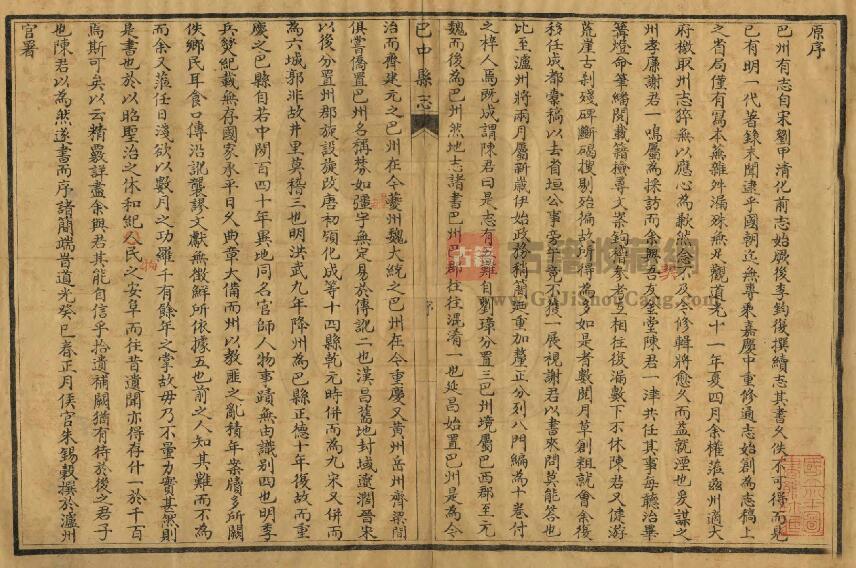 原序
巴州有志自宋劉甲清化前志始厥後李鈞復撰續志其書久佚不可得而見
已有明一代著錄未聞逮乎國朝迄無專乘嘉慶中重修通志始創為志稿上
之省局僅有寫本蕪雜舛漏殊無足觀道光十一年夏四月余權蒞茲州適大
府檄取州志猝無以應心為歉然念不及今修輯將愈久而益就湮也爰謀之
州孝廉謝君一鳴屬為採訪而余與吾友奎堂陳君一津共任其事每聽治畢
篝燈命筆繙閱載籍檢尋文案鉤稽參考互相往復漏數下不休陳君又健游
荒崖古刹殘碑斷碣搜剔殆徧故所得為多如是者數閱月草創粗就會余復
移任成都橐稿以去省垣公事旁午竟不獲一展視謝君以書來問莫能答也
比至瀘州將兩月屬新歲伊始政務稍簡迺重加釐正分列八門編為十卷付
之梓人焉既成謂陳君曰是志有難自劉璋分置三巴州境屬巴西郡至元
魏而後為巴州然地志諸書巴州巴郡往往混淆一也延昌始置巴州是為今
巴中縣志
序
治而齊建元之巴州在今夔州魏大統之巴州在今重慶又黃州岳州齊梁間
俱嘗僑置巴州名稱棼如疆宇無定易於傳訛二也漢昌舊地封域遼濶晉宋
以後分置州郡旋設旋改唐初領化成等十四縣乾元時併而為九宋又併而
為六城郭非故井里莫稽三也明洪武九年降州為巴縣正德十年復故而重
慶之巴縣自若中閱百四十年異地同名官師人物事蹟無由識別四也明季
兵燹紀載無存國家承平日久典章大備而州以教匪之亂積年案牘多所闕
佚鄉民耳食口傳沿訛襲謬文獻無徵鮮所依據五也前之人知其難而不為
而余又蒞任日淺欲以數月之功羅千有餘年之掌故毋乃不量力實甚然則
是書也於以昭聖治之休和紀人民之安阜而往昔遺聞亦得存什一於千百
焉斯可矣以云精覈詳盡余與君其能自信乎拾遺補闕猶有待於後之君子
也陳君以為然遂書而序諸簡端旹道光癸巳春正月侯官朱錫穀撰於瀘州
官署
古籍收藏网
www.GuJiShouCang.com